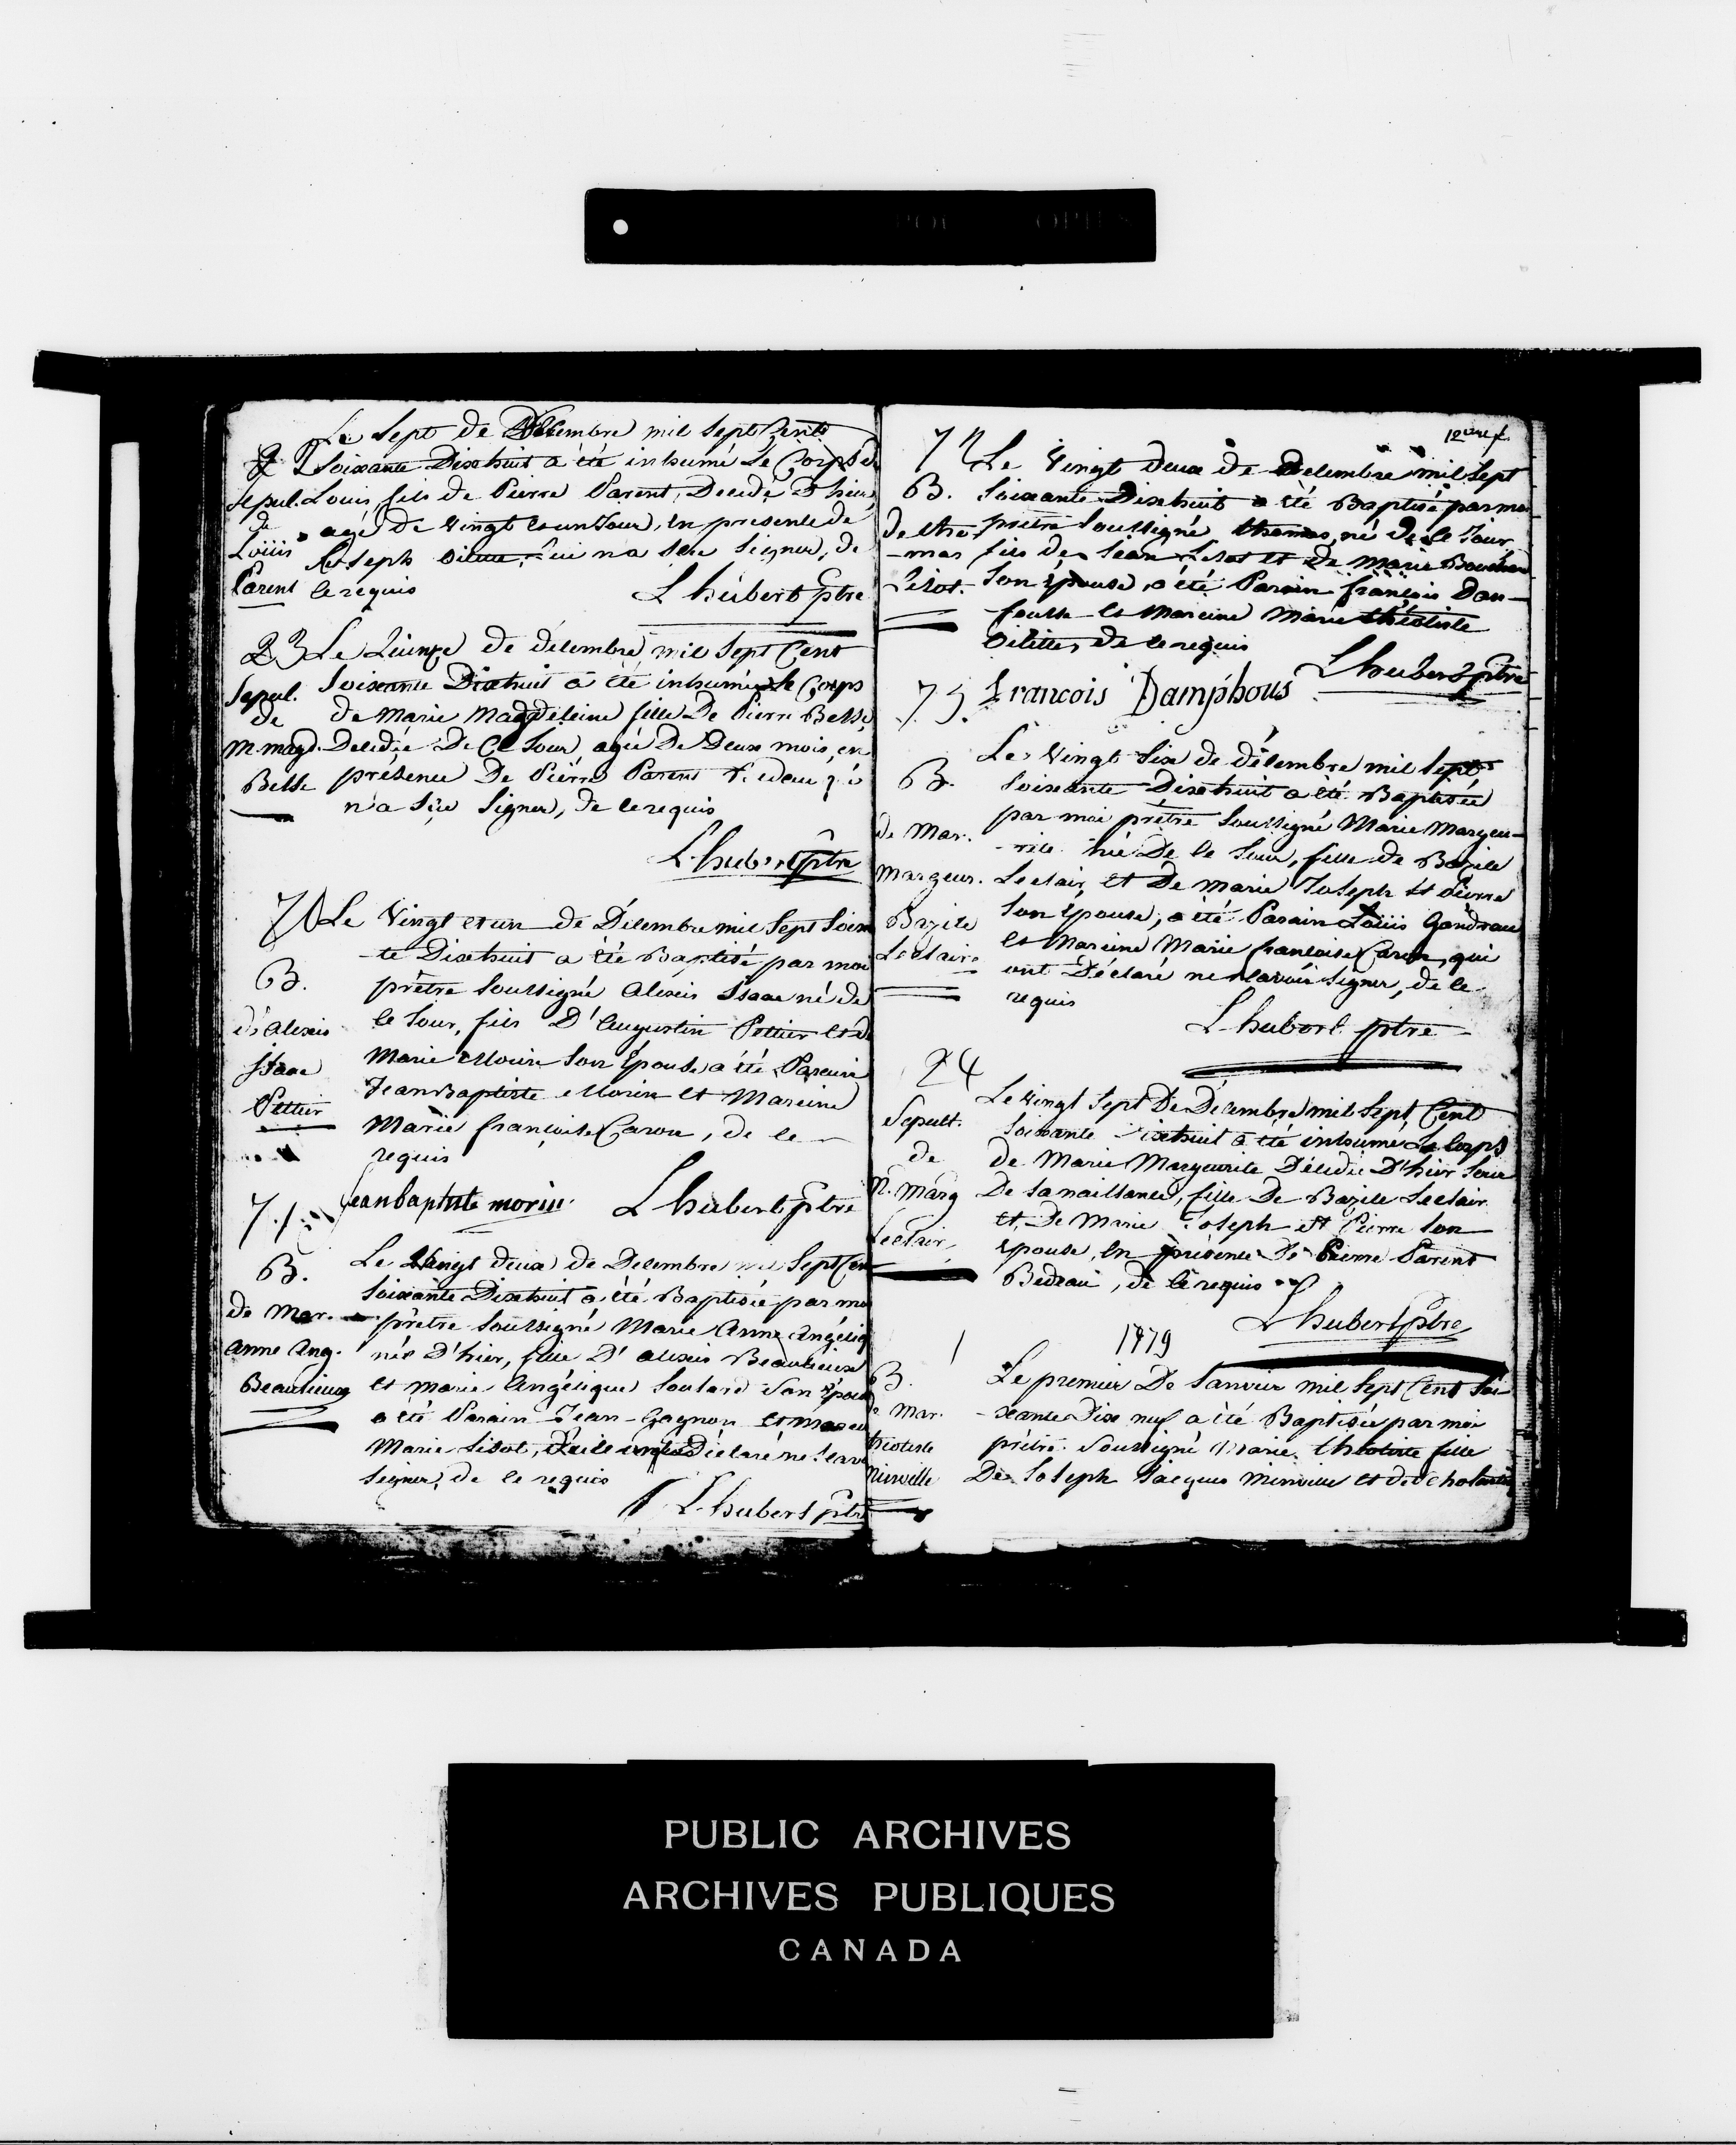 Le sept de Décembre mil sept Cent
Soixante Dixhuit a été inhumé Le Corps de
Sepul. Louis, fils de Pierre Parent, Decedé D'hier,
de agé de vingt et un Jour, en presence de
Louis Joseph qui n'a sçu signer, de
Parent ce requis L. hubert ptre
23 Le Quinze de décembre mil sept Cent
Sepul. Soixante Dixhuit a été inhumé Le Corps
de de Marie Magdeleine fille De Pierre Belle
m. magd. Decedée De Ce Jour, agée De Deux mois, en
Belle présence De Pierre Parent Bedeau qui
n'a sçu signer, de ce requis
L. hubert ptre
70 Le Vingt et un de Décembre mil sept soixan
te Dixhuit a été Baptisé par moi
B. prêtre soussigné Alexis Isaac né de
d'alexis ce Jour, fils D'augustin Pettier et de
Isaac Marie Morin son Épouse a été Parain
Pettier Jean Baptiste Morin et Mareine
Marie francoise Caron, de ce
requis
Jean baptiste morin L hubert ptre
71
Le Vingt deux de Decembre mil Sept Cen
B. soixante Dixhuit a été Baptisée par moi
de Mar. prêtre soussigné Marie Anne Angéliq
anne ang. née D'hier, fille D'alexis Beaulieux
Beaulieux et marie Angélique Soulard Son Épouse
a été Parain Jean Gagnon et Mareine
Marie Lisot, déclaré ne scavoir
signer, de ce requis
L. hubert ptre
12
Le Vingt deux de Decembre mil Sept
B. soixante Dixhuit a été Baptisé par moi
de tho prêtre soussigné thomas, né de ce Jour
-mas fils de Jean Lisot et De Marie Boucher
Lisot. Son épouse, a été Parain françois Dan-
fousse et Mareine Marie théotiste
de ce requis
L hubert ptre
73. Francois Damphous
Le Vingt Six de décembre mil sept
B. soixante Dixhuit a été Baptisée
par moi prêtre soussigné Marie Margeu-
de Mar. -rite née De ce Jour, fille de Bazile
Margeur. Leclair, et De marie Joseph St Pierre
Bazile Son épouse, a été Parain Louis Gandreau
Leclaire et Mareine Marie francoise Caron, qui
ont Déclaré ne scavoir signer, de ce
requis
L. hubert ptre
24
Le vingt Sept De Décembre mil Sept Cent
Sepult. soixante Dixhuit a été inhumé Le Corps
de de Marie Margeurite Décédée D'hier Jour
M. Marg De sa naissance, fille De Bazile Leclair
Leclair et De Marie Joseph St Pierre Son
épouse, en présence de Pierre Parent
Bedeau, de ce requis
L hubert ptre
1 1779
B. Le premier De Janvier mil Sept Cent Soi-
de Mar. -xante Dix neuf a été Baptisée par moi
théotiste prêtre soussigné Marie théotiste fille
Minville De Joseph Jacques Minville et de
PUBLIC ARCHIVES
ARCHIVES PUBLIQUES
CANADA